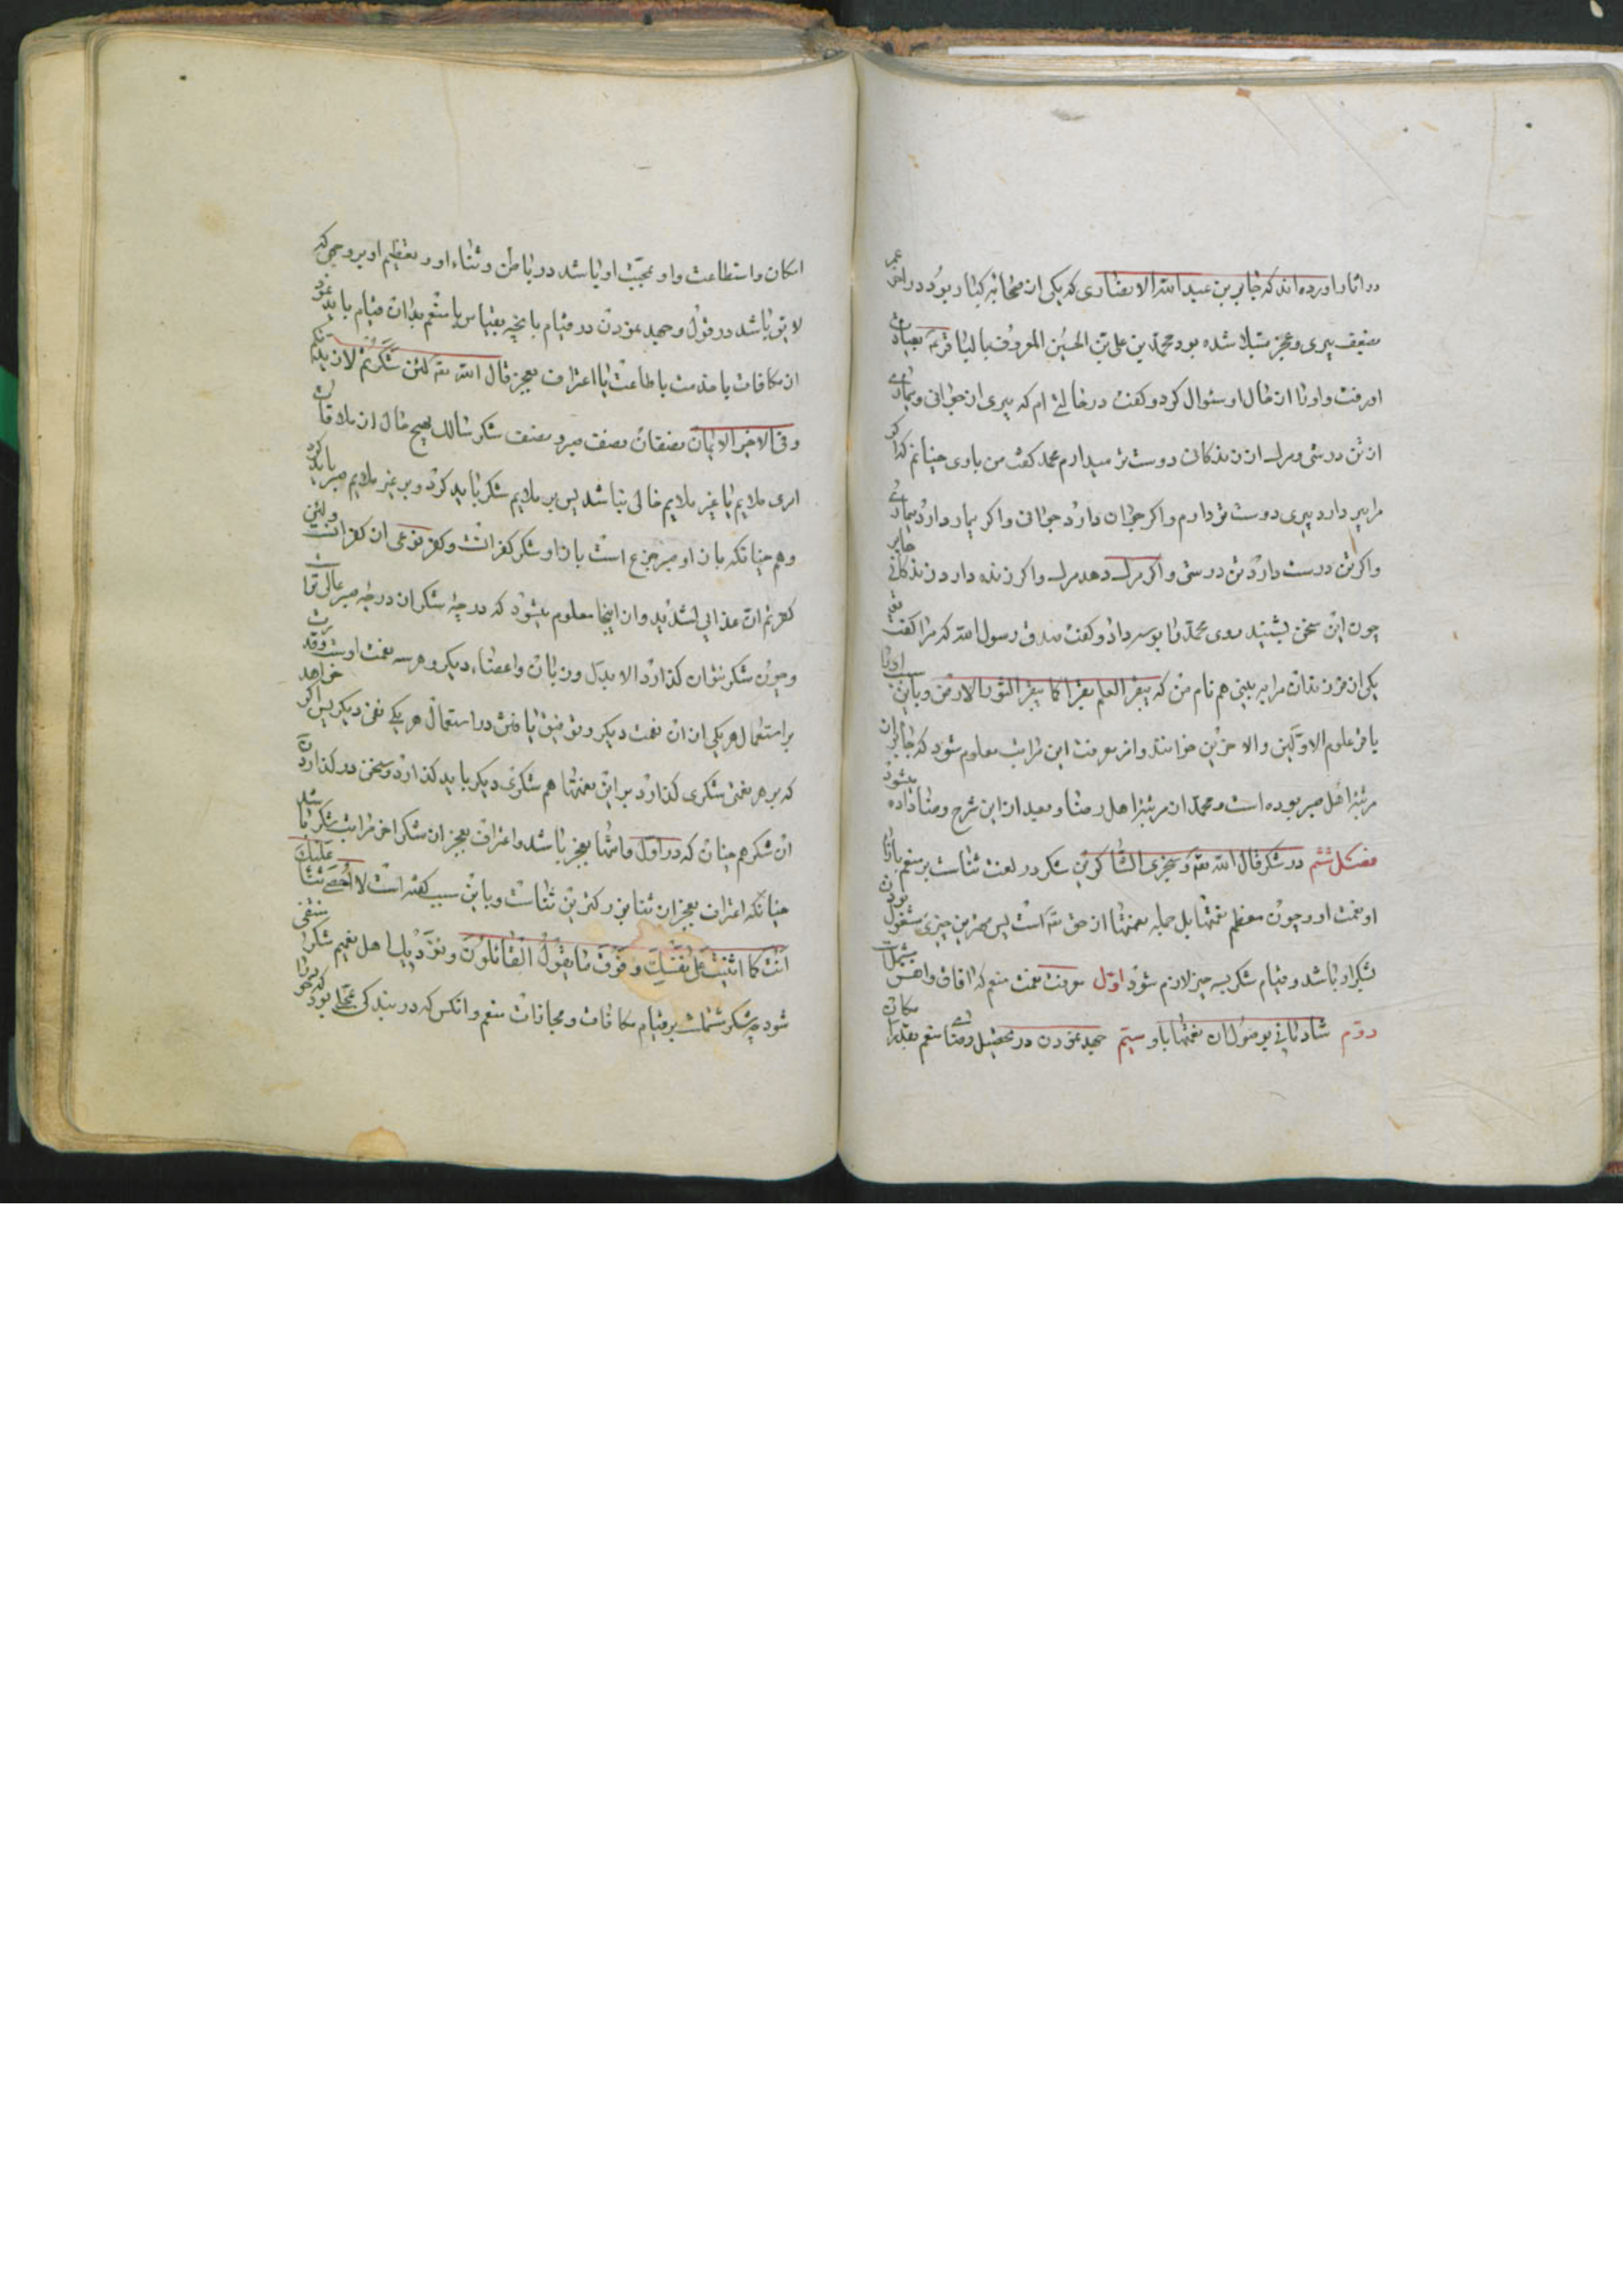 در اثار اورده‌اند که جابر بن عبد الله الانصاری که یکی از صحابه کبار بود در اخر عمر
بضعف پیری و عجز مبتلا شده بود محمد بن علی بن الحسین المعروف بالباقر بعیادت
او رفت و او را از حال او سئوال کرد و گفت در حالتی ام که پیری از جوانی و بیماری
از تن درستی و مرک از زندکانی دوست تر میدارم محمد گفت من باری چنانم که اکر
مرا پیر دارد پیری دوست تر دارم و اکر جوان دارد جوانی و اکر بیمار دارد بیماری
و اکر تن درست دارد تن درستی و اکر مرک دهد مرک و اکر زنده دارد زندکانی جابر
چون این سخن بشنید روی محمد را بوسه داد و گفت صدق رسول الله که مرا گفت
یکی از فرزندان مرا به بینی هم نام من که یبقر العلم بقرا کما یبقر الثور الارض و باین سبب او را
باقر علوم الاولین والاخرین خوانند و از معرفت این مراتب معلوم شود که جابر از
مرتبه اهل صبر بوده است و محمد از مرتبه اهل رضا و بعد از این شرح رضا داده میشود
فصل ششم در شکر قال الله تعه و سنجزی الشاکرین شکر در لغت ثناست بر منعم بازای
او نعمت او و چون معظم نعمتها بل جمله نعمتها از حق تعه است پس بهترین چیزی مشغول بودن
بشکر او باشد و قیام شکر بسه چیز لازم شود اول معرفت نعمت منعم که افاق و انفس مشتمل است
دوم شادمانی بوصول ان نعمتها باو سیم جهد نمودن در تحصیل رضای منعم بقدر امکان
امکان و استطاعت و او بمحبت او باشد در باطن و ثناء او و تعظیم او بر وجهی که
لایق باشد در قول و جهد نمودن در قیام بانچه بقیاس با منعم بدان قیام باید نمود
از مکافات یا خدمت یا طاعت یا اعتراف بعجز قال الله تعه لئن شکرتم لازیدنکم
و فی الاخبر الایمان نصفان نصف صبر و نصف شکر سالک بهیچ حال از ملاقات
امری ملایم یا غیر ملایم خالی نباشد پس بر ملایم شکر باید کرد و بر غیر ملایم صبر باید کرد
و هم چنانکه بازاو صبر جزع است بازاو شکر کفرانست و کفر نوعی از کفرانست و لئن
کفرتم ان عذابی لشدید و از اینجا معلوم میشود که درجه شکر از درجه صبر عالی تر است
و چون شکر نتوان کذارد الا بدل و زبان و اعضاء دیکر و هر سه نعمت اوست و قدرت
بر استعمال هر یکی از ان نعمت دیکر و توفیق یافتن در استعمال هر یکی نعمتی دیکر پس اکر خواهد
که بر هر نعمتی شکری کذارد بر این نعمتها هم شکری دیکر باید کذارد و سخن در کذاردن
ان شکر هم چنان که در اول و انتها بعجز باشد و اعتراف بعجز از شکر اخر مراتب شکر باشد
چنانکه اعتراف بعجز از ثنا بزرکترین ثناست و باین سبب گفته است لا احصی ثناء علیک
انت کما اثنیت علی نفسک و فوق ما یقول القائلون و نزدیک اهل تسلیم شکر منتفی
شود چه شکر مشتمل است بر قیام مکافات و مجازات منعم و انکس که در بندکی بمحلی بود که خود را